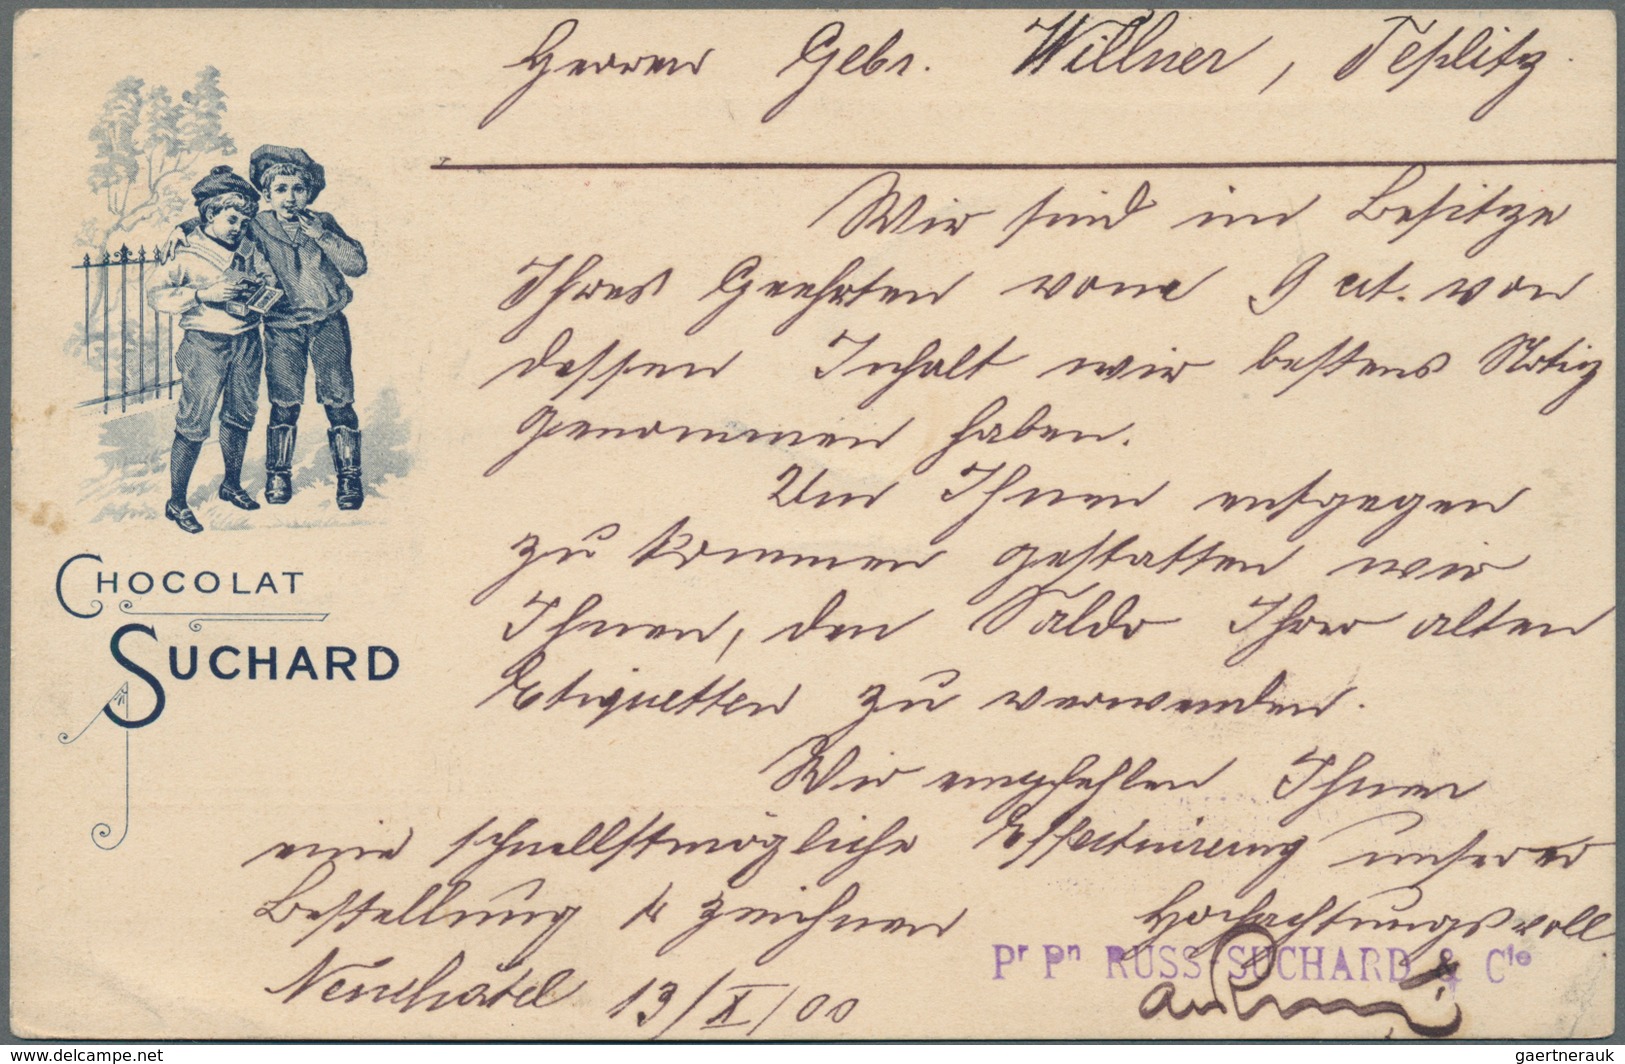 Herren Gebr. Willner, Teplitz.
Wir sind im Besitze
Ihres Geehrten vom 9 ct. von
dessen Inhalt wir bestens Notiz
genommen haben.
Um Ihnen entgegen
zu kommen gestatten wir
Ihnen, den Saldo Ihrer alten
Etiquetten zu verwenden.
Wir empfehlen Ihnen
eine schnellstmögliche Effectuirung unserer
Bestellung & zeichnen Hochachtungsvoll
Pr Pn RUSS-SUCHARD & Cie
Neuchâtel 13/X/00
CHOCOLAT
SUCHARD
www.delcampe.net
gaertnerauk